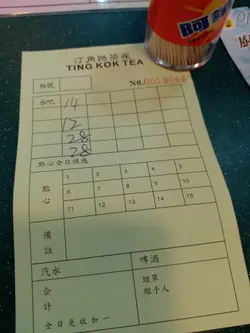 汀角路茶座
TING KOK TEA
枱號
No. 0013066
水吧 14
12
28
28
點心全日供應
點心
1 2 3 4 5
6 7 8 9 10
11 12 13 14 15
備註
汽水 啤酒
合計
埋單
經手人
全日免收加一